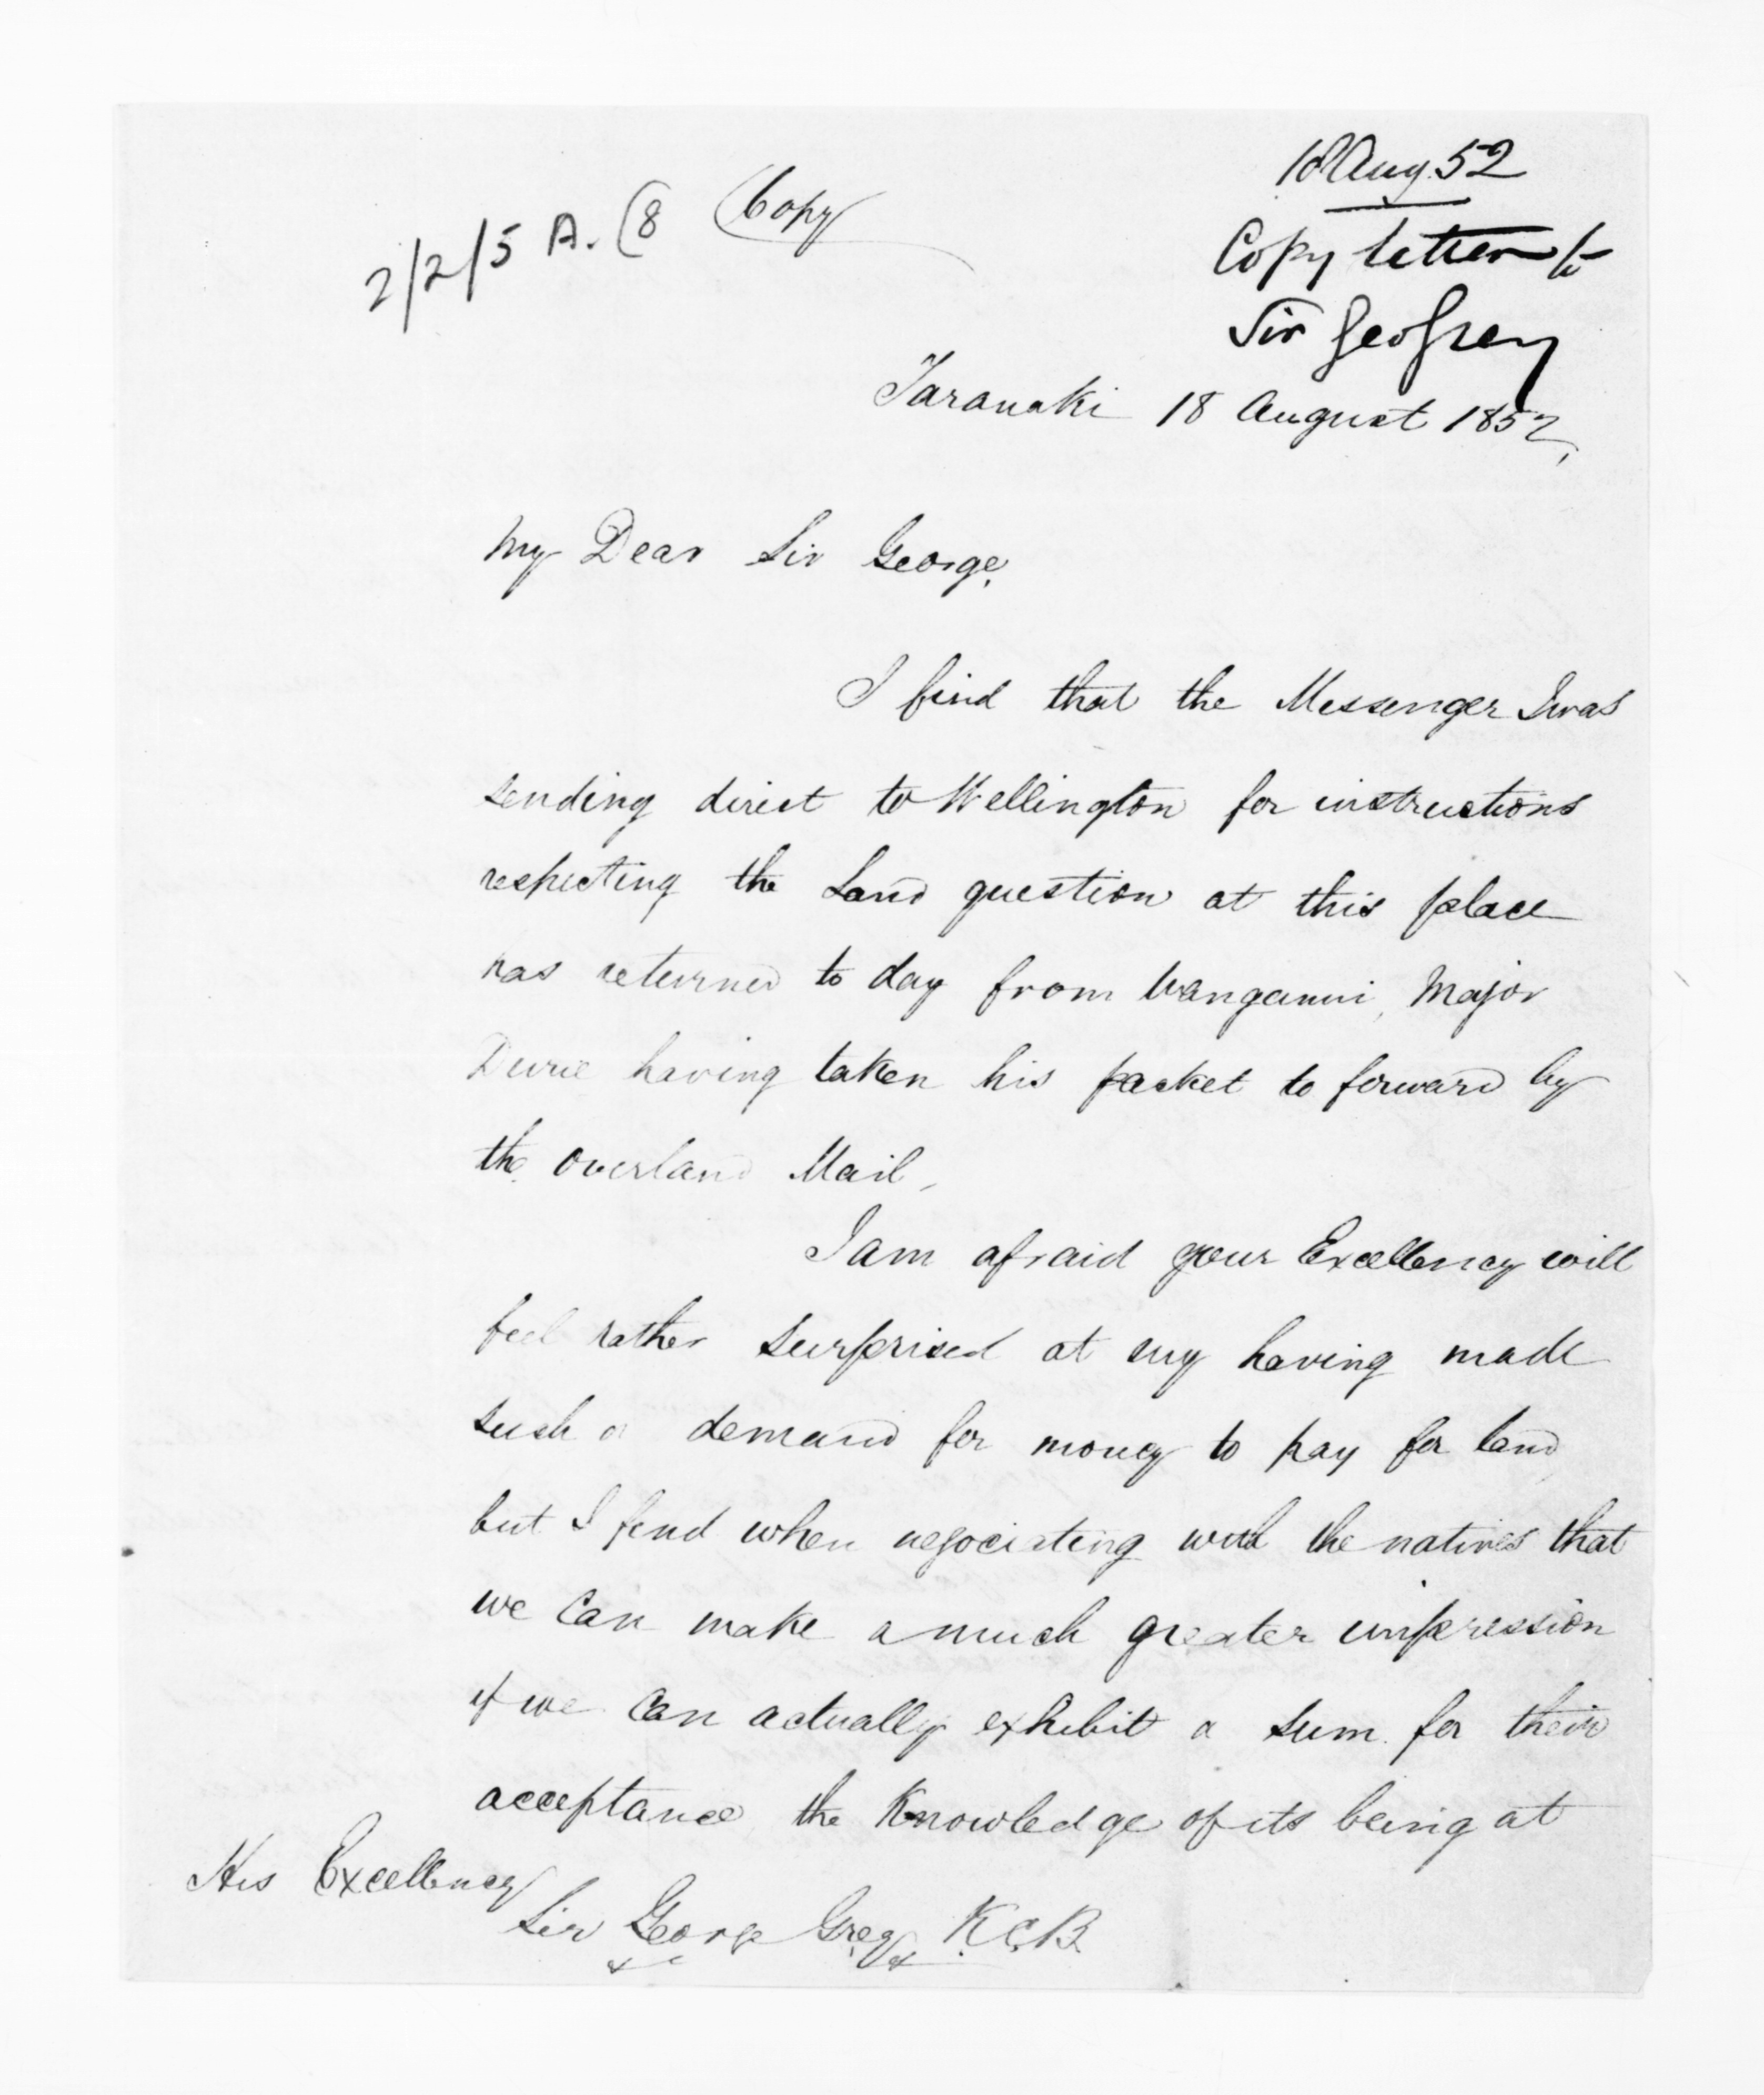 2/2/5 A. (8
Copy
18 Aug. 52
Copy letter to
Sir Geo Grey
Taranaki 18 August 1852,
My Dear Sir George,
I find that the Messenger I was
sending direct to Wellington for instructions
respecting the Land question at this place
has returned to day from Wanganui, Major
Durie having taken his packet to forward by
the Overland Mail,
I am afraid your Excellency will
feel rather surprised at my having made
such a demand for money to pay for land
but I find when negociating with the natives that
we can make a much greater impression
if we can actually exhibit a sum for their
acceptance, the Knowledge of its being at
His Excellency
Sir George Grey K.C.B.